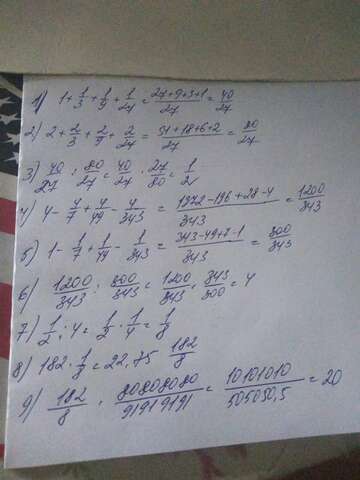 1) 1+1/3+1/9+1/27=(27+9+3+1)/27=40/27
2) 2+2/3+2/9+2/27=(54+18+6+2)/27=80/27
3) 40/27:80/27=40/27·27/80=1/2
4) 4-4/7+4/49-4/343=(1372-196+28-4)/343=1200/343
5) 1-1/7+1/49-1/343=(343-49+7-1)/343=300/343
6) 1200/343:300/343=1200/343·343/300=4
7) 1/2:4=1/2·1/4=1/8
8) 182·1/8=22,75 182/8
9) 182/8·80808080/91919191=10101010/505050,5=20